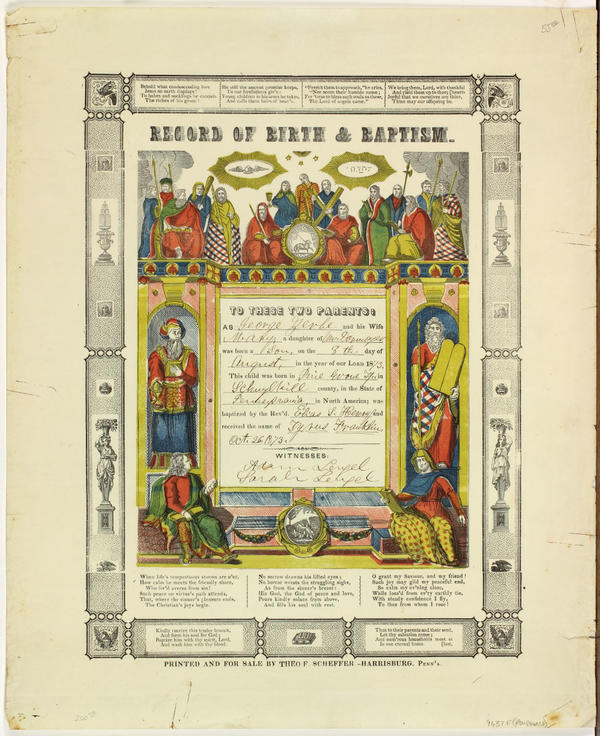 Behold what condescending love
Jesus on earth displays!
To babes and sucklings he extends
The riches of his grace!
He still the ancient promise keeps,
To our forefathers giv'n;
Young children in his arms he takes,
And calls them heirs of heav'n.
"Permit them to approach," he cries,
"Nor scorn their humble name;
For 'twas to bless such souls as these,
The Lord of angels came."
We bring them, Lord, with thankful
And yield them up to thee; [hearts
Joyful that we ourselves are thine,
Thine may our offspring be.
RECORD OF BIRTH & BAPTISM.
TO THESE TWO PARENTS:
AS George Zerbe and his Wife
Mary, a daughter of
was born a Son, on the 8 th. day of
August, in the year of our LORD 1873.
This child was born in Pine Grove Tp. in
Schuylkill county, in the State of
Pennsylvania, in North America; was
baptized by the Rev'd. Elias S. Henry, and
received the name of Cyrus Franklin,
Oct. 26 1873.
WITNESSES:
Adam Lengel
Sarah Lengel
When life's tempestuous storms are o'er,
How calm he meets the friendly shore,
Who liv'd averse from sin!
Such peace on virtue's path attends,
That, where the sinner's pleasure ends,
The Christian's joys begin.
No sorrow drowns his lifted eyes;
No horror wrests the struggling sighs,
As from the sinner's breast:
His God, the God of peace and love,
Pours kindly solace from above,
And fills his soul with rest.
O grant my Saviour, and my friend!
Such joy may gild my peaceful end,
So calm my ev'ning close;
While loos'd from ev'ry earthly tie,
With steady confidence I fly,
To thee from whom I rose!
Kindly receive this tender branch,
And form his soul for God;
Baptize him with thy spirit, Lord,
And wash him with thy blood.
Thus to their parents and their seed,
Let thy salvation come;
And num'rous households meet at
In our eternal home. [last,
PRINTED AND FOR SALE BY THEO F. SCHEFFER -HARRISBURG, PENN'A.